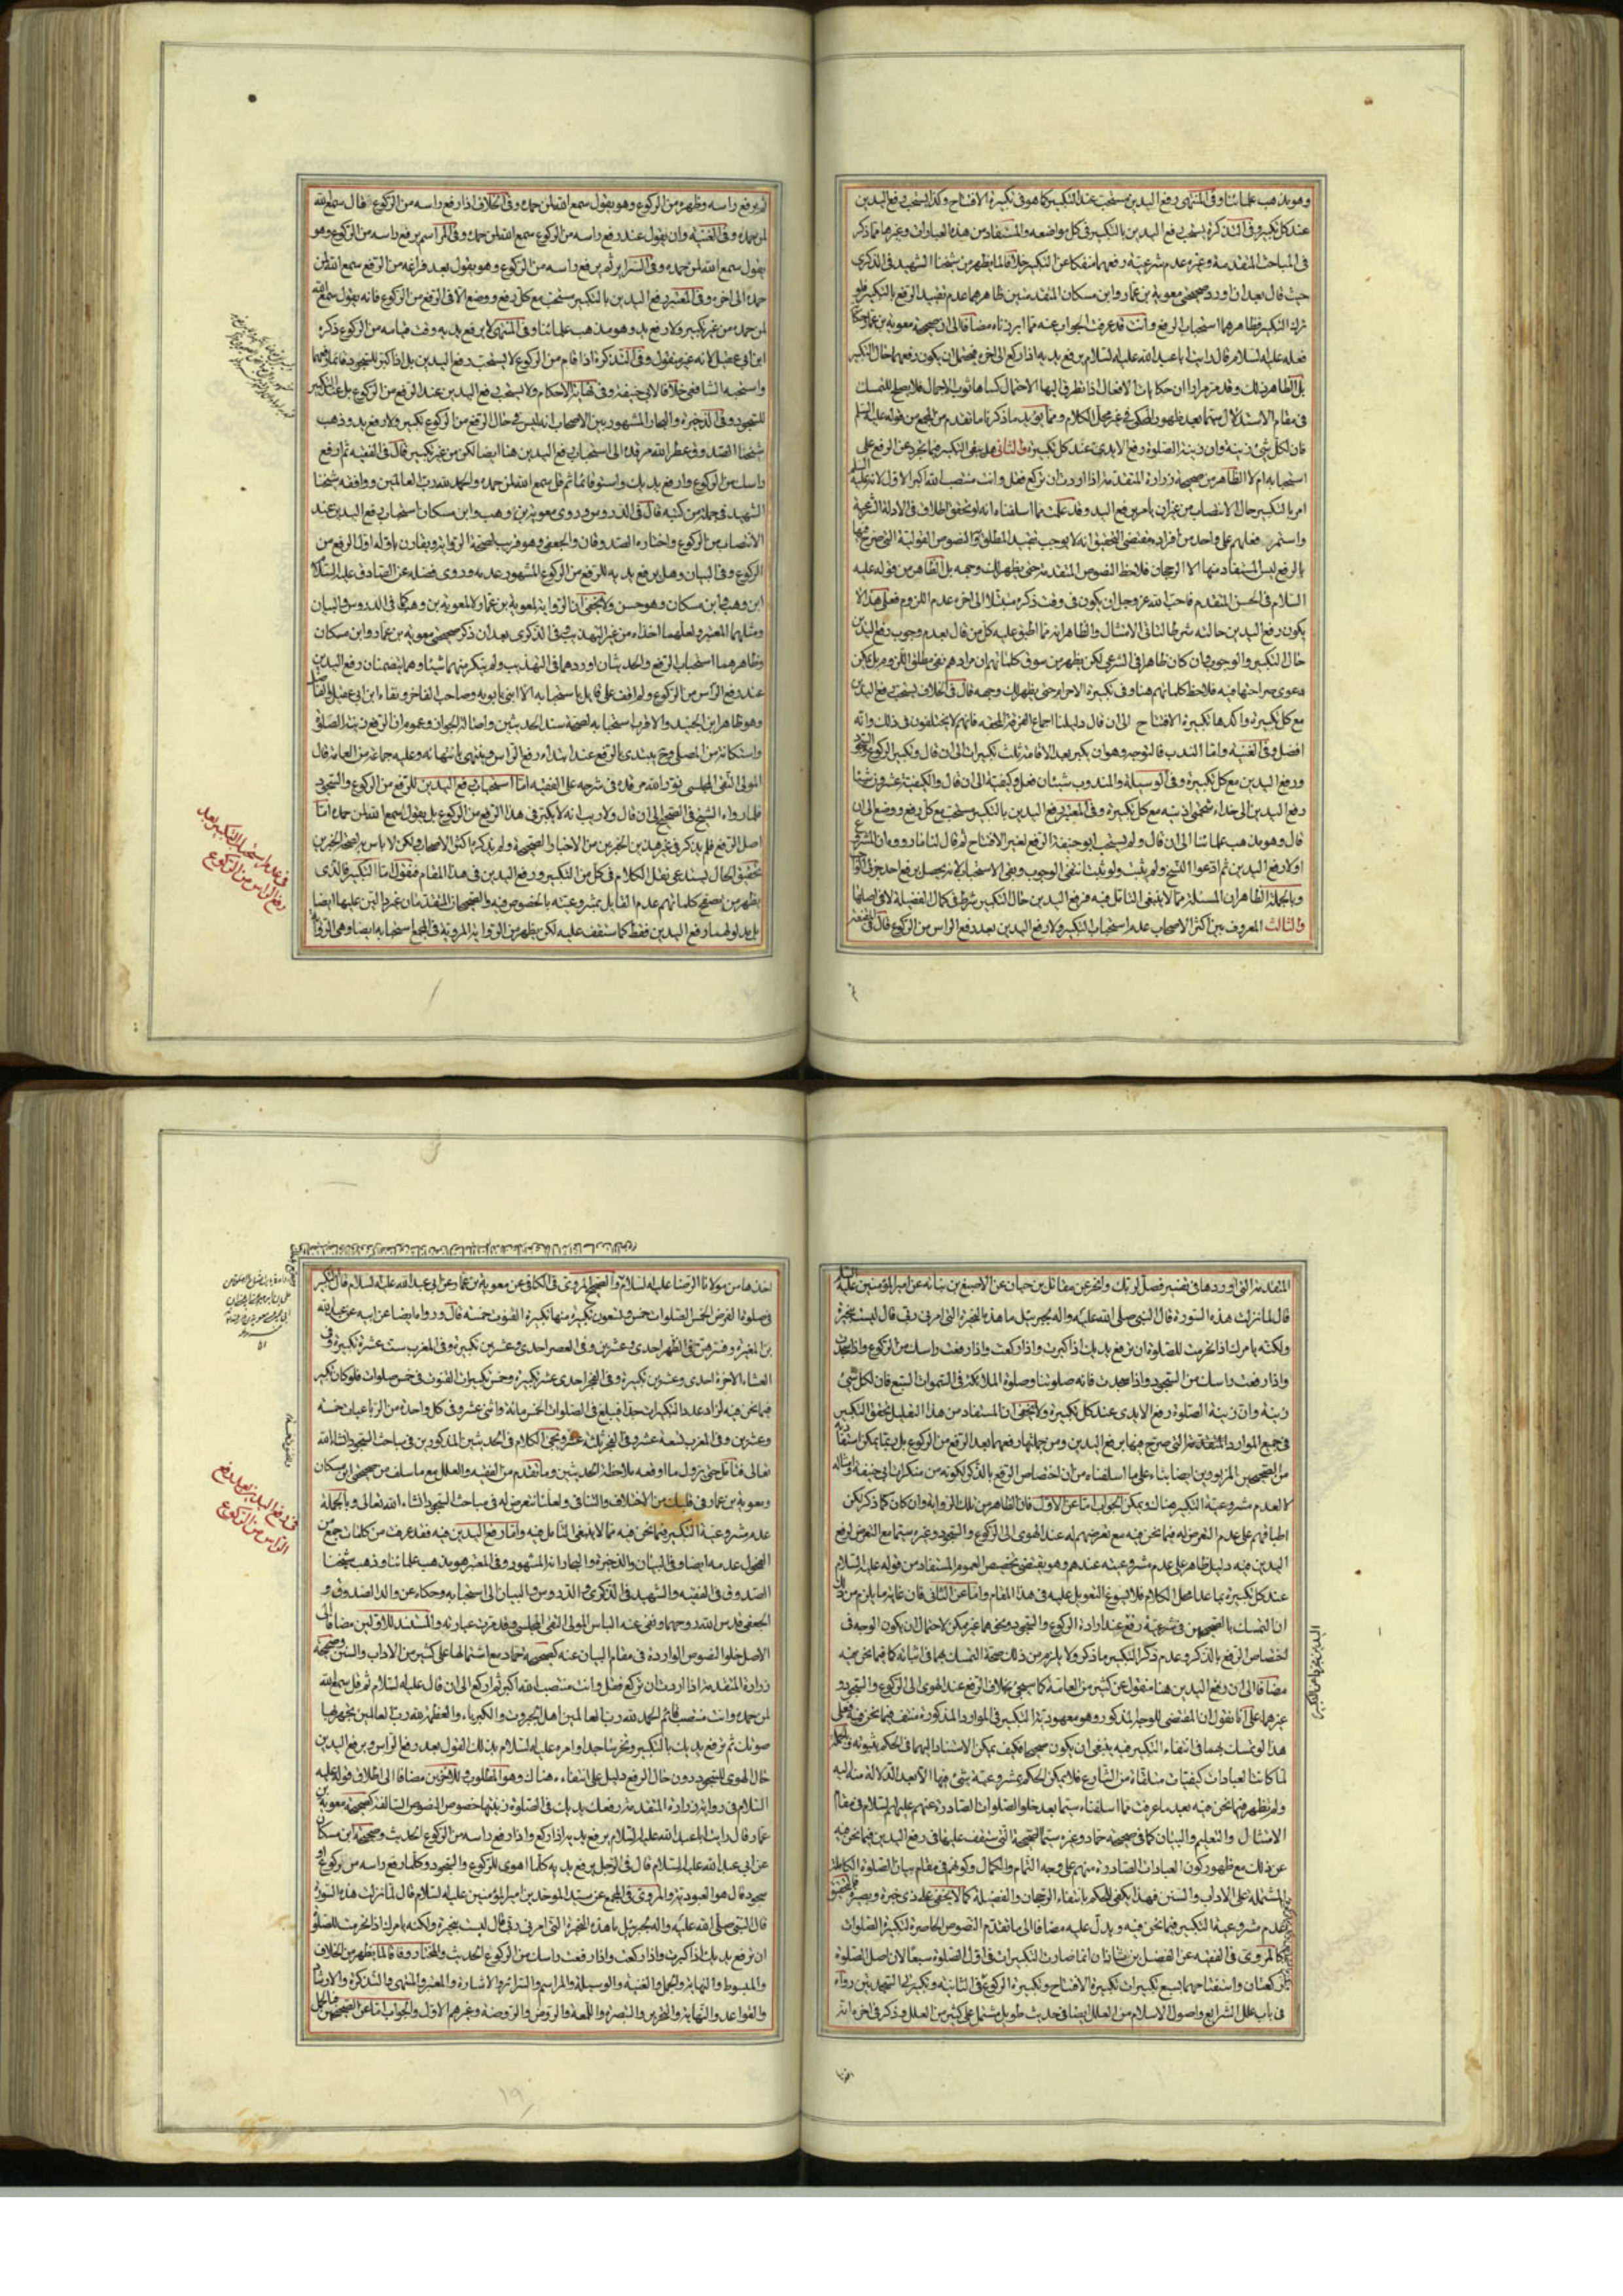 وهو مذهب علمائنا وفي المنتهى رفع اليدين مستحب عند التكبير كما هو في تكبيرة الافتتاح وكذا يستحب رفع اليدين
عند كل تكبير وفي التذكرة يستحب رفع اليدين بالتكبير في كل مواضعه والمستفاد من هذه العبارات وغيرها مما ذكر
في المباحث المتقدمة وغيره عدم شرعية رفعهما منفكا عن التكبير خلافا لما يظهر من شيخنا الشهيد في الذكرى
حيث قال بعد ان اورد صحيحتي معوية بن عمار وابن مسكان المتقدمتين ظاهرهما عدم تقييد الرفع بالتكبير فلو
ترك التكبير فظاهرهما استحباب الرفع وانت قد عرفت الجواب عنه مما ابرزناه مضافا الى ان صحيحة معوية بن عمار
فعله عليه السلام قال رايت ابا عبد الله عليه السلام يرفع يديه اذا ركع الى اخره فيحتمل ان يكون رفعهما حال التكبير
بل الظاهر ذلك وقد مر مرارا ان حكايات الافعال اذا تطرق اليها الاحتمال كساها ثوب الاجمال فلا يصلح للتمسك
في مقام الاستدلال سيما بعد ظهور المطلوب في غير محل الكلام ومما يؤيد ما ذكرنا ما تقدم من المجمع من قوله عليه السلم
فان لكل شئ زينة وان زينة الصلوة رفع الايدي عند كل تكبيرة والثاني هل ينفي التكبير فيما تجرد عن الرفع على
استحبابه ام لا الظاهر من صحيحة زرارة المتقدمة اذا اردت ان تركع فقل وانت منتصب الله اكبر الاول لانه عليه السلم
امر بالتكبير حال الانتصاب من غير ان يامر برفع اليد وقد علمت مما اسلفناه انه لو تحقق اطلاق في الادلة الشرعية
واستمر فعلهم على واحد من افراده مقتضى التحقيق انه لا يوجب تقييد المطلق والنصوص القولية التي صرح فيها
بالرفع ليس المستفاد منها الا الرجحان فلاحظ النصوص المتقدمة حتى يظهر لك وجهه بل الظاهر من قوله عليه
السلام في الحسن المتقدم فاحب الله عز وجل ان يكون في وقت ذكره متبتلا الى اخره عدم اللزوم فعلى هذا لا
يكون رفع اليدين حالته شرطا الثاني الامتثال والظاهر انه مما اطبق عليه كل من قال بعدم وجوب رفع اليدين
حال التكبير والوجوب وان كان ظاهرا في الشرعي لكن يظهر من سوق كلماتهم ان مرادهم نفي مطلق اللزوم بل يمكن
دعوى صراحتها فيه فلاحظ كلماتهم هنا وفي تكبيرة الاحرام حتى يظهر لك وجهه قال في الخلاف يستحب رفع اليدين
مع كل تكبيرة واكدها تكبيرة الافتتاح الى ان قال دليلنا اجماع الفرقة المحقة فانهم لا يختلفون في ذلك وانه
افضل وفي الغنية واما الندب فالتوجه وهو ان يكبر بعد الاقامة ثلث تكبيرات الى ان قال وتكبير الركوع والسجود
ورفع اليدين مع كل تكبيرة وفي الوسيلة والمندوب شيئان فعل وكيفية الى ان قال والكيفية عشرون شيئا
رفع اليدين الى حذاء شحمتي اذنيه مع كل تكبيرة وفي المعتبر رفع اليدين بالتكبير مستحب مع كل رفع ووضع الى ان
قال وهو مذهب علمائنا الى ان قال ولم يستحب ابو حنيفة الرفع لغير الافتتاح ثم قال لنا ما رووه ان المشرع
اولا رفع اليدين ثم ادعوا النسخ ولم يثبت ولو ثبت انتفى الوجوب وبقي الاستحباب لانه يحصل برفع احد جزئي الواجب
وبالجملة الظاهر ان المسئلة مما لا ينبغي التامل فيه فرفع اليدين حال التكبير شرط في كمال الفضيلة لا في اصلها
والثالث المعروف بين اكثر الاصحاب عدم استحباب التكبير ولا رفع اليدين بعد رفع الراس من الركوع قال في المقنعة
ثم يرفع راسه وظهره من الركوع وهو يقول سمع الله لمن حمده وفي الخلاف اذا رفع راسه من الركوع قال سمع الله
لمن حمده وفي الغنية وان يقول عند رفع راسه من الركوع سمع الله لمن حمده وفي المراسم يرفع راسه من الركوع وهو
يقول سمع الله لمن حمده وفي السرائر ثم يرفع راسه من الركوع وهو يقول بعد فراغه من الرفع سمع الله لمن
حمده الى اخره وفي المعتبر رفع اليدين بالتكبير مستحب مع كل رفع ووضع الا في الرفع من الركوع فانه يقول سمع الله
لمن حمده من غير تكبير ولا رفع يد وهو مذهب علمائنا وفي المنتهى لا يرفع يديه وقت قيامه من الركوع ذكره
ابن ابي عقيل لانه غير منقول وفي التذكرة اذا قام من الركوع لا يستحب رفع اليدين بل اذا كبر للسجود قائما رفعهما
واستحبه الشافعي خلافا لابي حنيفة وفي نهاية الاحكام ولا يستحب رفع اليدين عند الرفع من الركوع بل عند التكبير
للسجود وفي الذخيرة والبحار المشهور بين الاصحاب انه ليس في حال الرفع من الركوع تكبير ولا رفع يد وذهب
شيخنا الصدوق عطر الله مرقده الى استحباب رفع اليدين هنا ايضا لكن من غير تكبير قال في الفقيه ثم ارفع
راسك من الركوع وارفع يديك واستو قائما ثم قل سمع الله لمن حمده والحمد لله رب العالمين ووافقه شيخنا
الشهيد في جملة من كتبه قال في الدروس وروى معوية بن وهب وابن مسكان استحباب رفع اليدين عند
الانتصاب من الركوع واختاره الصدوقان والجعفي وهو قريب لصحة الرواية ويقارن باوله اول الرفع من
الركوع وفي البيان وهل يرفع يديه للرفع من الركوع المشهور عدمه وروى فضله عن الصادق عليه السلام
ابن وهب وابن مسكان وهو حسن ولا يخفى ان الرواية لمعوية بن عمار لا لمعوية بن وهب كما في الدروس والبيان
ومثلهما المعتبر ولعلهما اخذاه من غير التهذيب وفي الذكرى بعد ان ذكر صحيحتي معوية بن عمار وابن مسكان
وظاهرهما استحباب الرفع والحديثان اوردهما في التهذيب ولم ينكر منهما شيئا وهما يتضمنان رفع اليدين
عند رفع الراس من الركوع ولم اقف على قائل باستحبابه الا ابني بابويه وصاحب الفاخر ونفاه ابن ابي عقيل والفاضل
وهو ظاهر ابن الجنيد والاقرب استحبابه لصحة سند الحديثين واصالة الجواز وعموم ان الرفع زينة الصلوة
واستكانة من المصلي وح يبتدئ بالرفع عند ابتداء رفع الراس وينتهي بانتهائه وعليه جماعة من العامة قال
المولى التقي المجلسي نور الله مرقده في شرحه على الفقيه اما استحباب رفع اليدين للرفع من الركوع والسجود
فلما رواه الشيخ في الصحيح الى ان قال ولا ريب انه لا يكبر في هذا الرفع من الركوع بل يقول سمع الله لمن حمده اما
اصل الرفع فلم يذكر في غير هذين الخبرين من الاخبار الصحيحة ولم يذكره اكثر الاصحاب ولكن لا باس به لصحة الخبرين
تحقيق الحال يستدعي نقل الكلام في كل من التكبير ورفع اليدين في هذا المقام فنقول اما التكبير فالذي
يظهر من تصفح كلماتهم عدم القايل بمشروعيته بالخصوص فيه والصحيحان المتقدمان غير دالين عليها ايضا
بل مدلولهما رفع اليدين فقط كما ستقف عليه لكن يظهر من الرواية المروية في المجمع استحبابه ايضا وهي الرواية
في عدم استحباب التكبير بعد
رفع الراس من الركوع
المتقدمة التي اوردها في تفسير فصل لربك وانحر عن مقاتل بن حيان عن الاصبغ بن نباته عن امير المؤمنين عليه السلم
قال لما نزلت هذه السورة قال النبي صلى الله عليه واله لجبرئيل ما هذه النحيرة التي امرني ربي قال ليست بنحيرة
ولكنه يامرك اذا تحرمت للصلوة ان ترفع يديك اذا كبرت واذا ركعت واذا رفعت راسك من الركوع واذا سجدت
واذا رفعت راسك من السجود واذا سجدت فانه صلوتنا وصلوة الملائكة في السموات السبع فان لكل شئ
زينة وان زينة الصلوة رفع الايدي عند كل تكبيرة ولا يخفى ان المستفاد من هذا التعليل تحقق التكبير
في جميع الموارد المتقدمة التي صرح فيها برفع اليدين ومن جملتها رفعهما بعد الرفع من الركوع بل ربما يمكن استفادته
من الصحيحين المزبورين ايضا بناء على ما اسلفناه من ان اختصاص الرفع بالذكر لكونه من منكرات ابي حنيفة وامثاله
لا لعدم مشروعية التكبير هناك ويمكن الجواب اما عن الاول فان الظاهر من تلك الرواية وان كان كما ذكر لكن
اطباقهم على عدم التعرض له فيما نحن فيه مع تعرضهم له عند الهوى الى الركوع والسجود وغيره سيما مع التعرض لرفع
اليدين فيه دليل ظاهر على عدم مشروعيته عندهم وهو يقتضي تخصيص العموم المستفاد من قوله عليه السلام
عند كل تكبيرة بما عدا محل الكلام فلا يسوغ التعويل عليه في هذا المقام واما عن الثاني فان غاية ما يلزم من ذلك
ان التمسك بالصحيحين في شرعية رفع عند ارادة الركوع والسجود ونحوهما غير ممكن لاحتمال ان يكون الوجه في
اختصاص الرفع بالذكر وعدم ذكر التكبير ما ذكر ولا يلزم من ذلك صحة التمسك بهما في اثباته كما فيما نحن فيه
مضافا الى ان رفع اليدين هنا منقول عن كثير من العامة كما سيجئ بخلاف الرفع عند الهوى الى الركوع والسجود و
غيرهما على انا نقول ان المقتضي للوجه المذكور وهو معهودية التكبير في الموارد المذكورة منتف فيما نحن فيه وعلى
هذا لو تمسك بهما في انتفاء التكبير فيه ينبغي ان يكون صحيحا فكيف يمكن الاستناد اليهما في الحكم بثبوته وبالجملة
لما كانت العبادات كيفيات متلقاة من الشارع فلا يمكن الحكم بمشروعية شئ فيها الا بعد الدلالة منه اليه
ولم تظهر فيما نحن فيه بعد ما عرفت مما اسلفناه سيما بعد خلو الصلوات الصادرة عنهم عليهم السلام في مقام
الامتثال والتعليم والبيان كما في صحيحة حماد وغيره سيما الصحيحة التي ستقف عليها في رفع اليدين فيما نحن فيه
عن ذلك مع ظهور كون العبادات الصادرة منهم على وجه التمام والكمال وكونهم في مقام بيان الصلوة الكاملة
المشتملة على الاداب والسنن فهذا يكفي للحكم بانتفاء الرجحان والفضيلة كما لا يخفى على ذي خبرة وبصيرة فالتحقيق
عدم مشروعية التكبير فيما نحن فيه ويدل عليه مضافا الى ما تقدم النصوص الحاصرة لتكبيرة الصلوات
كالمروي في الفقيه عن الفضل بن شاذان انما صارت التكبيرات في اول الصلوة سبعا لان اصل الصلوة
ركعتان واستفتاحهما بسبع تكبيرات تكبيرة الافتتاح وتكبيرة الركوع في الثانية وتكبيرتي السجدتين رواه
في باب علل الشرايع واصول الاسلام من العلل ايضا في حديث طويل مشتمل على كثير من العلل وذكر في اخره انه
اخذها من مولانا الرضا عليه السلام والصحيح المروي في الكافي عن معوية بن عمار عن ابي عبد الله عليه السلام قال التكبير
في صلوة الفرض الخمس الصلوات خمس وتسعون تكبيرة منها تكبيرة القنوت خمسة قال ورواه ايضا عن ابيه عن عبد الله
بن المغيرة وفسرهن في الظهر احدى وعشرين وفي العصر احدى وعشرين تكبيرة وفي المغرب ست عشرة تكبيرة وفي
العشاء الاخرة احدى وعشرين تكبيرة وفي الفجر احدى عشر تكبيرة وخمس تكبيرات القنوت في خمس صلوات فلو كان تكبير
فيما نحن فيه لزاد عدد التكبيرات جدا فيبلغ في الصلوات الخمس مائة واثني عشر وفي كل واحدة من الرباعيات خمسة
وعشرين وفي المغرب تسعة عشر وفي الفجر ثلثة عشر ويجئ الكلام في الحديثين المذكورين في مباحث السجود انشاء الله
تعالى فتامل حتى يزول ما اوقعه ملاحظة الحديثين وما تقدم من الفقيه والعلل مع ما سلف من صحيحتي ابن مسكان
ومعوية بن عمار في قلبك من الاختلاف والتنافي ولعلنا نتعرض له في مباحث السجود انشاء الله تعالى وبالجملة
عدم مشروعية التكبير فيما نحن فيه مما لا ينبغي التامل فيه واما رفع اليدين فيه فقد عرفت من كلمات جمع من
الفحول عدمه ايضا وفي البيان والذخيرة والبحار انه المشهور وفي المعتبر هو مذهب علمائنا وذهب شيخنا
الصدوق في الفقيه والشهيد في الذكرى والدروس والبيان الى استحبابه وحكاه عن والد الصدوق و
الجعفي قدس الله روحهما ونفى عنه الباس المولى التقي المجلسي وقد مرت عبارته والمستند للاولين مضافا الى
الاصل خلو النصوص الواردة في مقام البيان عنه كصحيحة حماد مع اشتمالها على كثير من الاداب والسنن وصحيحة
زرارة المتقدمة اذا اردت ان تركع فقل وانت منتصب الله اكبر ثم اركع الى ان قال عليه السلام ثم قل سمع الله
لمن حمده وانت منتصب قائم الحمد لله رب العالمين اهل الجبروت والكبرياء والعظمة لله رب العالمين تجهر بها
صوتك ثم ترفع يديك بالتكبير وتخر ساجدا وامره عليه السلام بذلك القول بعد رفع الراس ويرفع اليدين
حال الهوى للسجود دون حال الرفع دليل على انتفاءه هناك وهو المطلوب وللاخرين مضافا الى اطلاق قوله عليه
السلام في رواية زرارة المتقدمة رفعك يديك في الصلوة زينتها خصوص النصوص السالفة كصحيحة معوية بن
عمار قال رايت ابا عبد الله عليه السلام يرفع يديه اذا ركع واذا رفع راسه من الركوع الحديث وصحيحة ابن مسكان
عن ابي عبد الله عليه السلام قال في الرجل يرفع يديه كلما اهوى للركوع والسجود وكلما رفع راسه من ركوع او
سجود قال هو العبودية والمروي في المجمع عن سيد الموحدين امير المؤمنين عليه السلام قال لما نزلت هذه السورة
قال النبي صلى الله عليه واله لجبرئيل ما هذه النحيرة التي امرني ربي قال ليست بنحيرة ولكنه يامرك اذا تحرمت للصلوة
ان ترفع يديك اذا كبرت واذا ركعت واذا رفعت راسك من الركوع الحديث والمختار وفاقا لما يظهر من الخلاف
والمبسوط والنهاية والجمل والغنية والوسيلة والمراسم والسرائر والاشارة والمعتبر والمنتهى والتذكرة والارشاد
والقواعد والنهاية والتحرير والتبصرة واللمعة والروض والروضة وغيرهم الاول والجواب اما عن الصحيحين
في رفع اليدين بعد رفع
الراس من الركوع